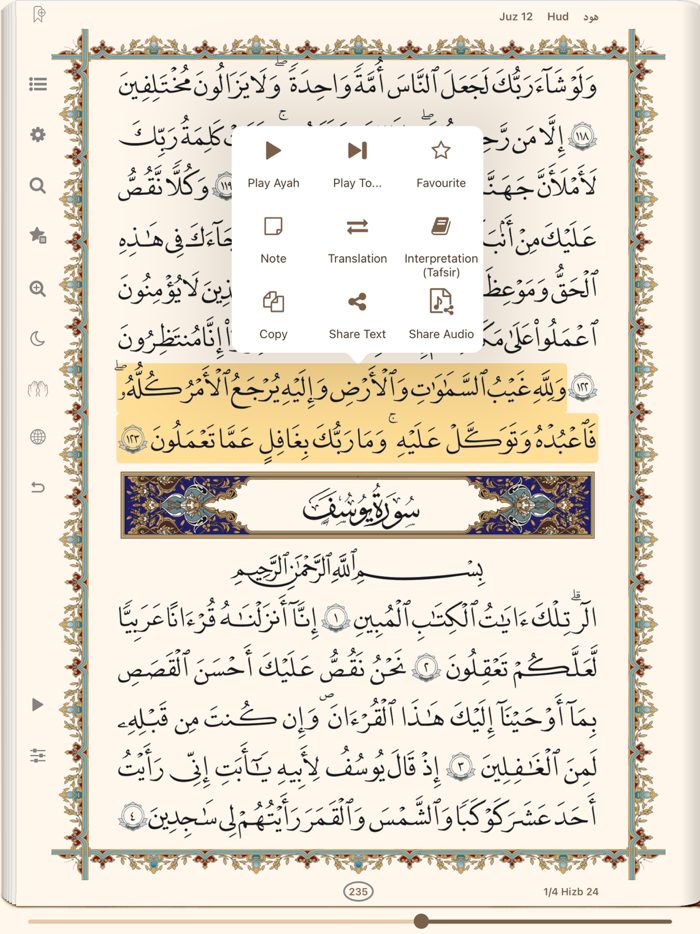 Juz 12 Hud هود
وَلَوْ شَآءَ رَبُّكَ لَجَعَلَ ٱلنَّاسَ أُمَّةً وَٰحِدَةً ۖ وَلَا يَزَالُونَ مُخْتَلِفِينَ
١١٨ إِلَّا مَن كَلِمَةُ رَبِّكَ
لَأَمْلَأَنَّ ١١٩ وَكُلًّا نَّقُصُّ
عَلَيْكَ مِنْ جَآءَكَ فِى هَٰذِهِ
ٱلْحَقُّ لَا يُؤْمِنُونَ
ٱعْمَلُوا۟ عَلَىٰ إِنَّا مُنتَظِرُونَ
Play Ayah Play To... Favourite
Note Translation Interpretation (Tafsir)
Copy Share Text Share Audio
١٢٢ وَلِلَّهِ غَيْبُ ٱلسَّمَٰوَٰتِ وَٱلْأَرْضِ وَإِلَيْهِ يُرْجَعُ ٱلْأَمْرُ كُلُّهُۥ
فَٱعْبُدْهُ وَتَوَكَّلْ عَلَيْهِ ۚ وَمَا رَبُّكَ بِغَٰفِلٍ عَمَّا تَعْمَلُونَ ١٢٣
سُورَةُ يُوسُفَ
بِسْمِ ٱللَّهِ ٱلرَّحْمَٰنِ ٱلرَّحِيمِ
الٓر ۚ تِلْكَ ءَايَٰتُ ٱلْكِتَٰبِ ٱلْمُبِينِ ١ إِنَّآ أَنزَلْنَٰهُ قُرْءَٰنًا عَرَبِيًّا
لَّعَلَّكُمْ تَعْقِلُونَ ٢ نَحْنُ نَقُصُّ عَلَيْكَ أَحْسَنَ ٱلْقَصَصِ
بِمَآ أَوْحَيْنَآ إِلَيْكَ هَٰذَا ٱلْقُرْءَانَ وَإِن كُنتَ مِن قَبْلِهِۦ
لَمِنَ ٱلْغَٰفِلِينَ ٣ إِذْ قَالَ يُوسُفُ لِأَبِيهِ يَٰٓأَبَتِ إِنِّى رَأَيْتُ
أَحَدَ عَشَرَ كَوْكَبًا وَٱلشَّمْسَ وَٱلْقَمَرَ رَأَيْتُهُمْ لِى سَٰجِدِينَ ٤
235 1/4 Hizb 24